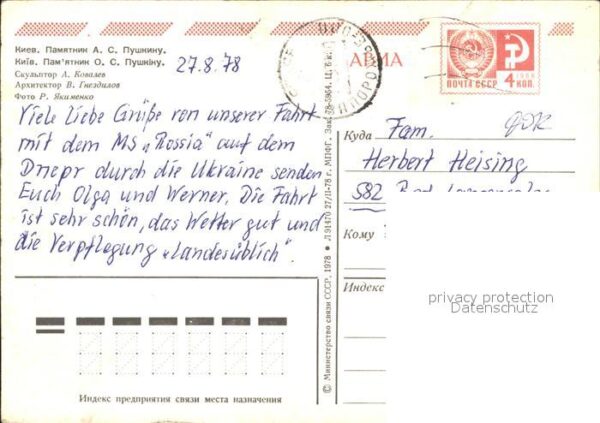 Киев. Памятник А. С. Пушкину.
Київ. Пам'ятник О. С. Пушкіну.
Скульптор А. Ковалев
Архитектор В. Гнездилов
Фото Р. Якименко
27.8.78
Viele liebe Grüße von unserer Fahrt
mit dem MS „Rossia" auf dem
Dnepr durch die Ukraine senden
Euch Olga und Werner. Die Fahrt
ist sehr schön, das Wetter gut und
die Verpflegung „Landesüblich".
Индекс предприятия связи места назначения
© Министерство связи СССР, 1978
Л 91470 27/II-78 г. МПФГ.
ПОЧТА СССР 4 КОП.
1966
Куда Fam.
DDR
Herbert Heising
582 Bad
Кому
Индекс
privacy protection
Datenschutz